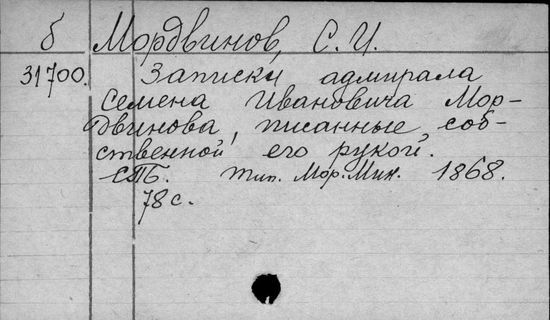 б Мордвинов, С. И.
31700. Записки адмирала
Семена Ивановича Мор-
двинова, писанные соб-
ственной его рукой.
СПБ. Тип. Мор. Мин. 1868.
78 с.